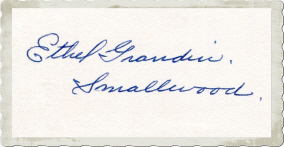 Ethel Grandin.
Smallwood.